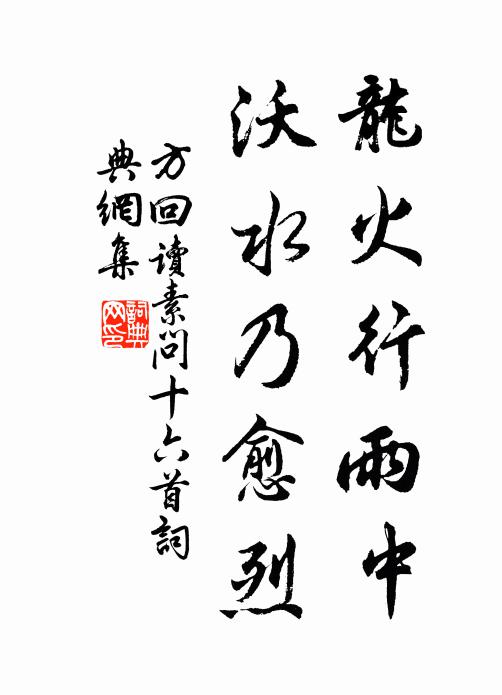 龍火行雨中
沃水乃愈烈
方回讀素問十六首詞
典網集
詞典
网印